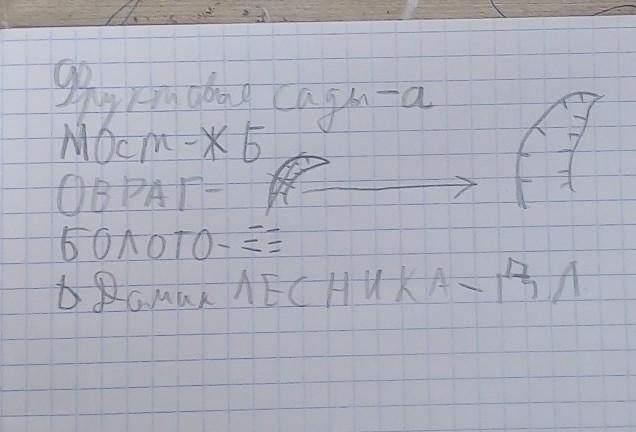 Фруктовые сады-а
Мост-Ж Б
ОВРАГ-
БОЛОТО-
Домик ЛЕСНИКА- Л